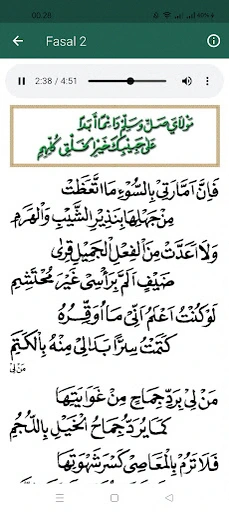 00.28
Fasal 2
2:38 / 4:51
مَوْلَايَ صَلِّ وَسَلِّمْ دَائِمًا أَبَدًا
عَلَى حَبِيْبِكَ خَيْرِ الْخَلْقِ كُلِّهِمِ
فَإِنَّ اَمَّارَتِيْ بِالسُّوْءِ مَا اتَّعَظَتْ
مِنْ جَهْلِهَا بِنَذِيْرِ الشَّيْبِ وَالْهَرَمِ
وَلَا اَعَدَّتْ مِنَ الْفِعْلِ الْجَمِيْلِ قِرٰى
ضَيْفٍ اَلَمَّ بِرَأْسِيْ غَيْرَ مُحْتَشِمِ
لَوْ كُنْتُ اَعْلَمُ اَنِّيْ مَا اُوَقِّرُهُ
كَتَمْتُ سِرًّا بَدَالِيْ مِنْهُ بِالْكَتَمِ
مَنْ لِيْ
مَنْ لِيْ بِرَدِّ جِمَاحٍ مِنْ غَوَايَتِهَا
كَمَا يُرَدُّ جِمَاحُ الْخَيْلِ بِاللُّجُمِ
فَلَا تَرُمْ بِالْمَعَاصِيْ كَسْرَ شَهْوَتِهَا